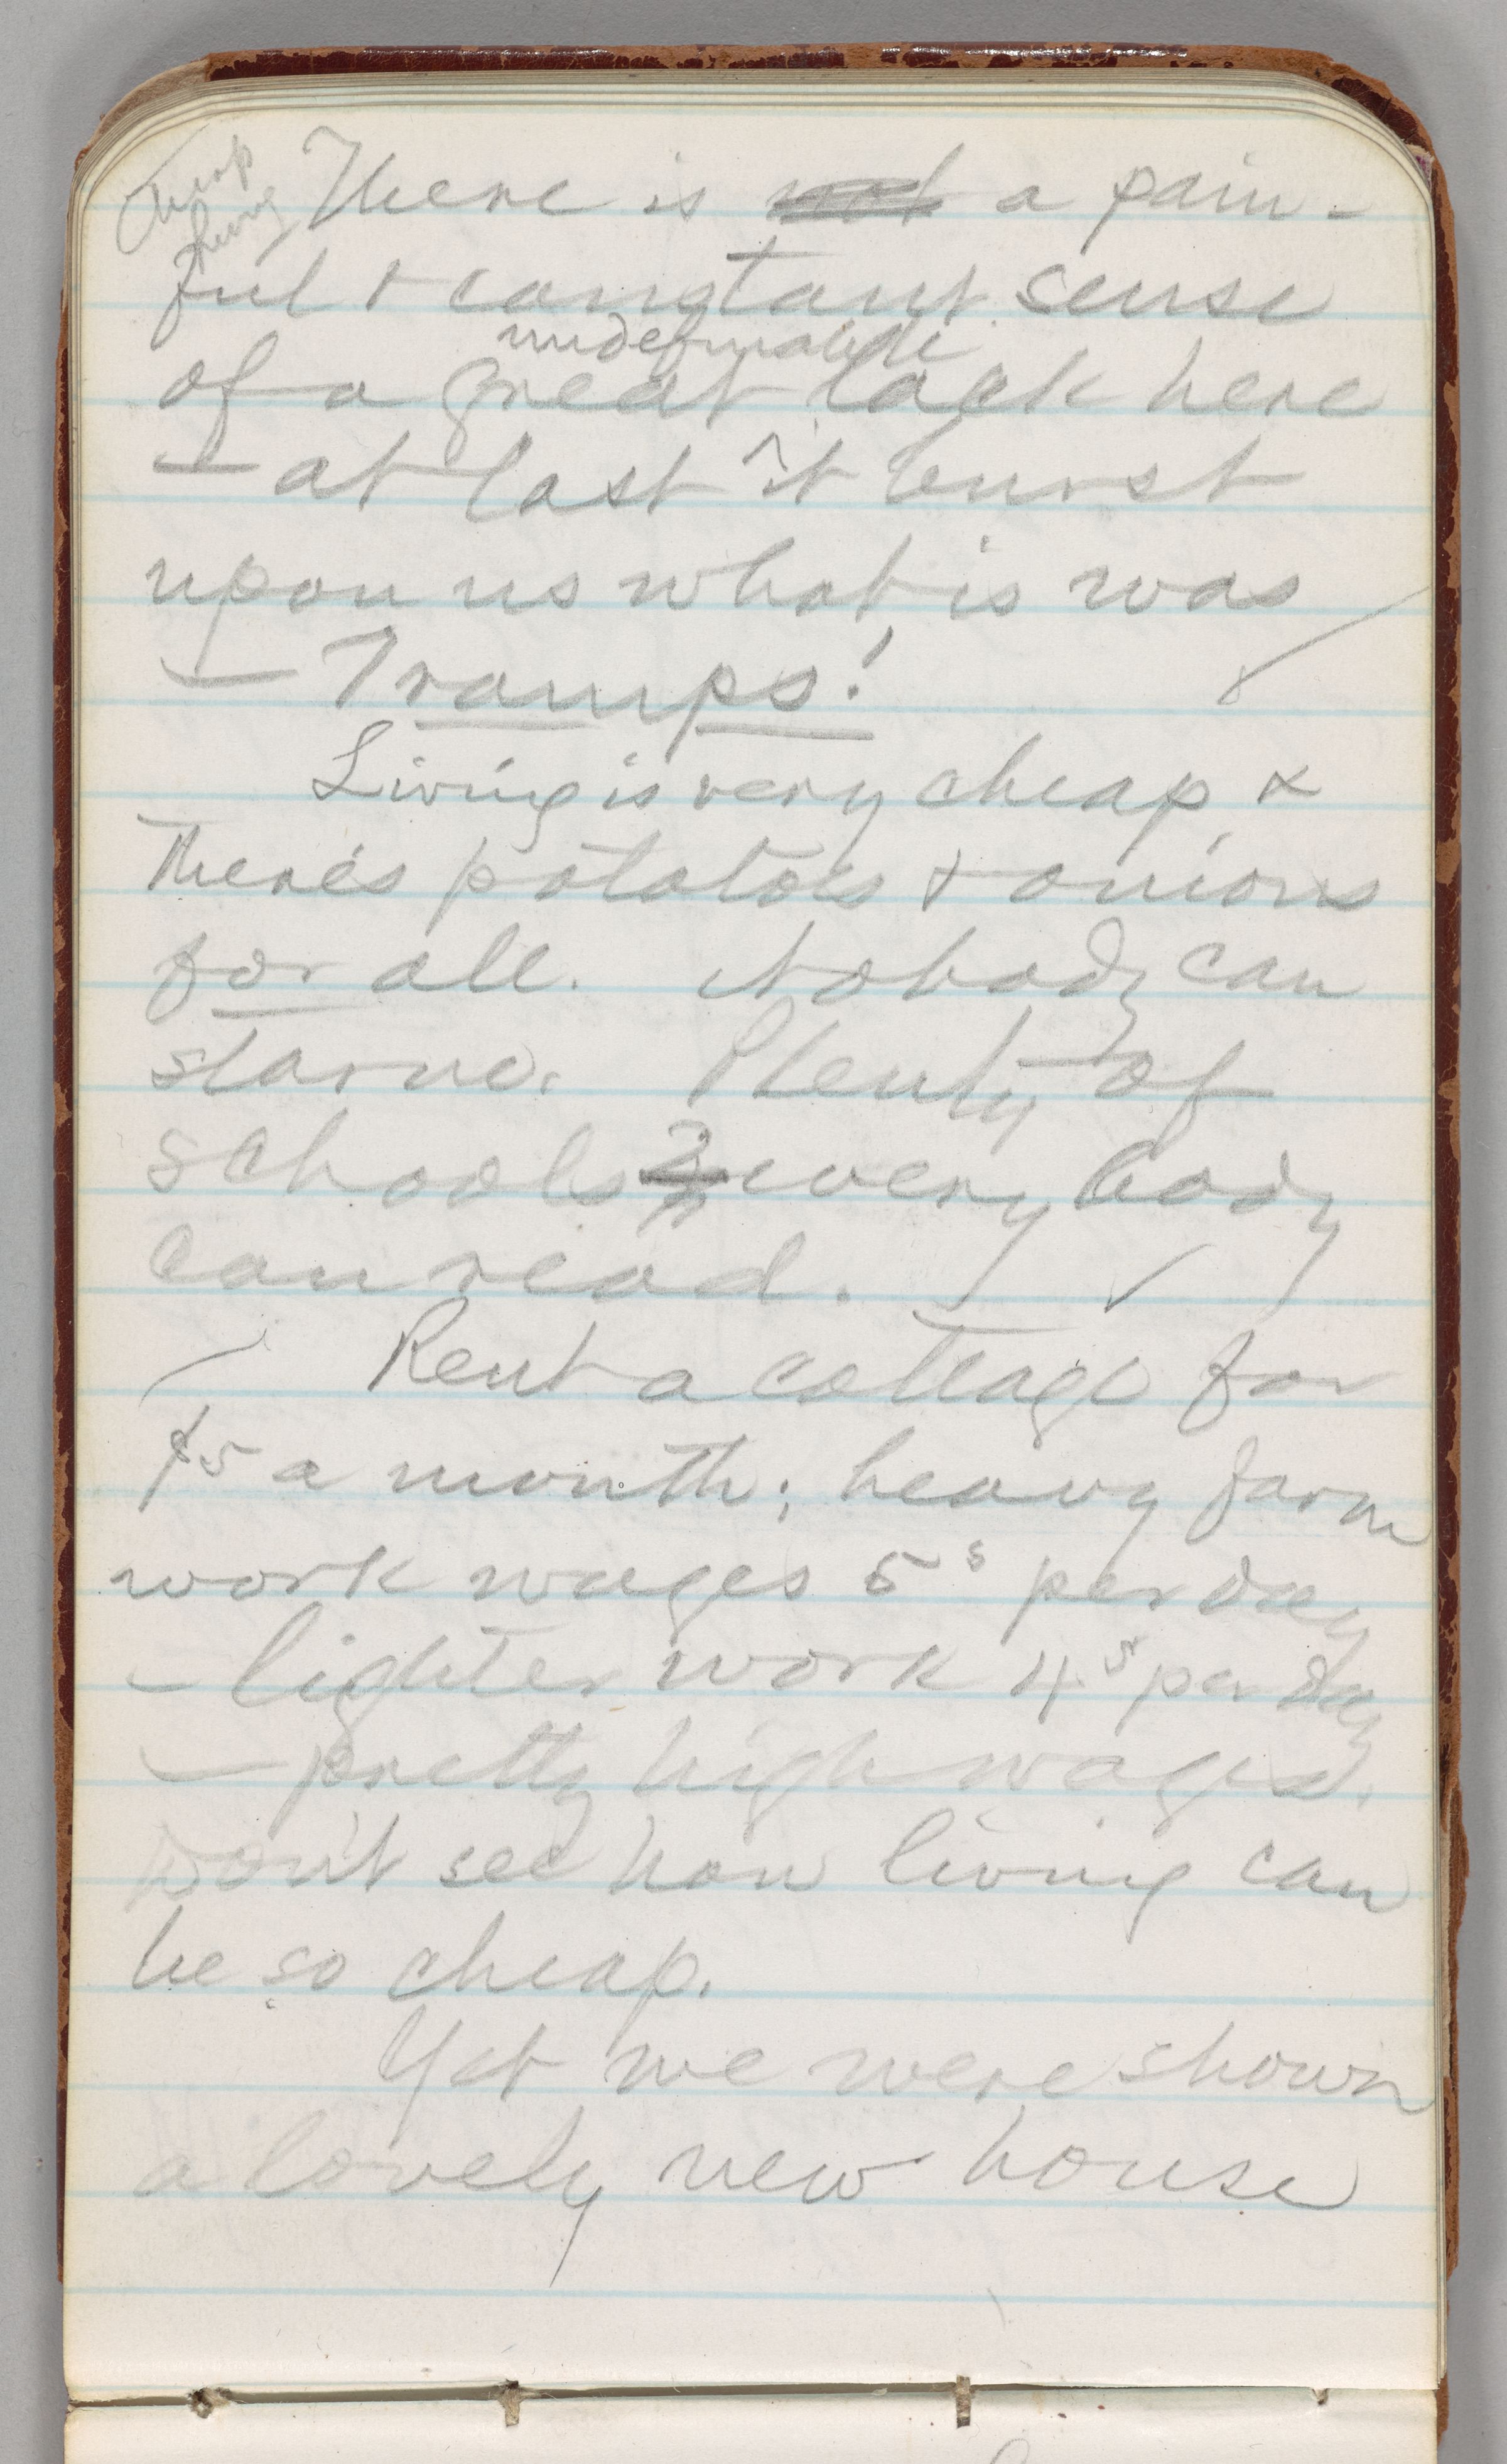 Cheap
living
There is not a pain-
ful & constant sense
undefinable
of a great lack here
— at last it burst
upon us what is was
— Tramps!
Living is very cheap &
there's potatoes & onions
for all. Nobody can
starve. Plenty of
schools & every body
can read.
Rent a cottage for
$5 a month; heavy farm
work wages 5s per day
— lighter work 4s per day
— pretty high wages.
Don't see how living can
be so cheap.
Yet we were shown
a lovely new house